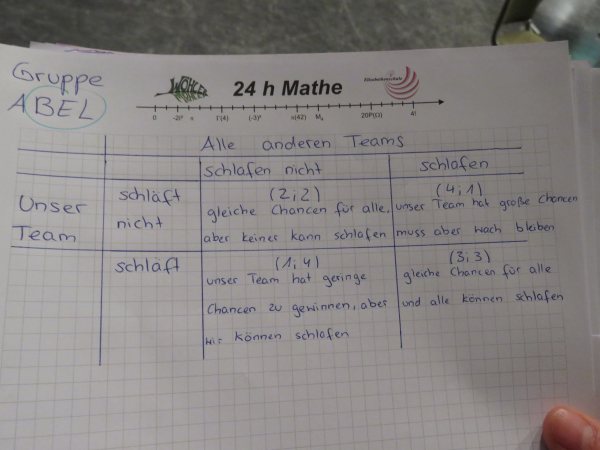 Gruppe
ABEL
WÖHLER
24 h Mathe
Elisabethenschule
0 -2i² π Γ(4) (-3)² π(42) M₄ 20P(Ω) 4!
Alle anderen Teams
schlafen nicht
schlafen
Unser
Team
schläft
nicht
(2;2)
gleiche Chancen für alle,
aber keiner kann schlafen
(4;1)
unser Team hat große Chancen
muss aber wach bleiben
schläft
(1;4)
unser Team hat geringe
Chancen zu gewinnen, aber
wir können schlafen
(3;3)
gleiche Chancen für alle
und alle können schlafen